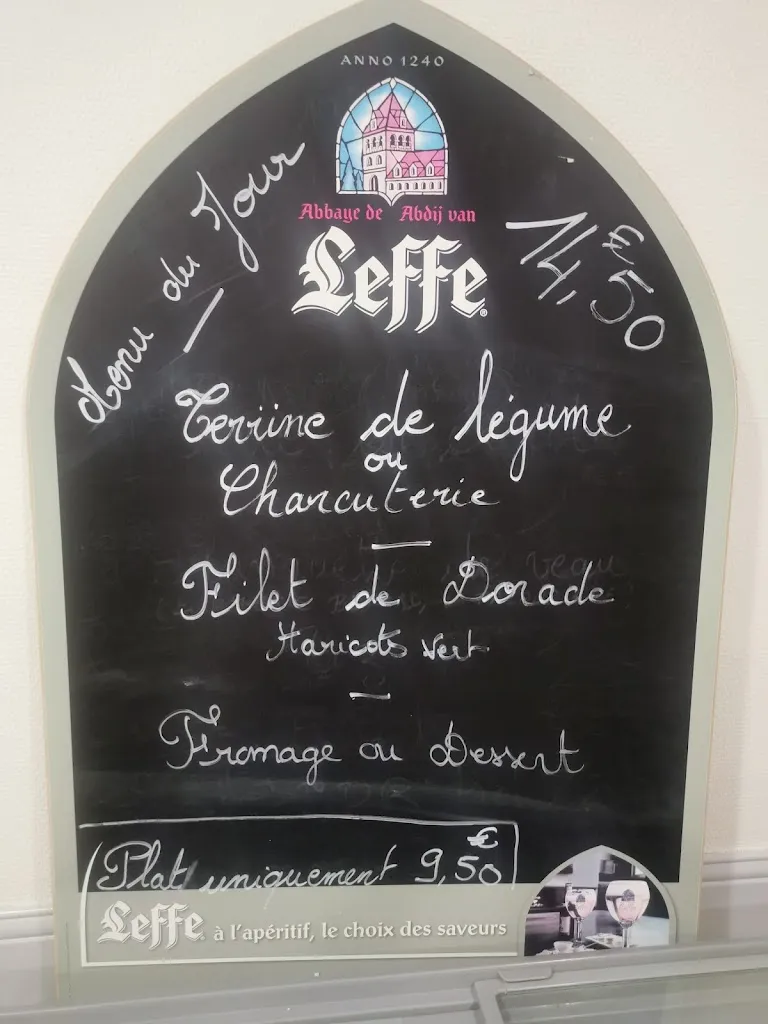 ANNO 1240
Abbaye de Abdij van
Leffe
Menu du Jour
14,50 €
Terrine de légume
ou
Charcuterie
Filet de Dorade
Haricots vert
Fromage ou Dessert
Plat uniquement 9,50 €
Leffe à l'apéritif, le choix des saveurs